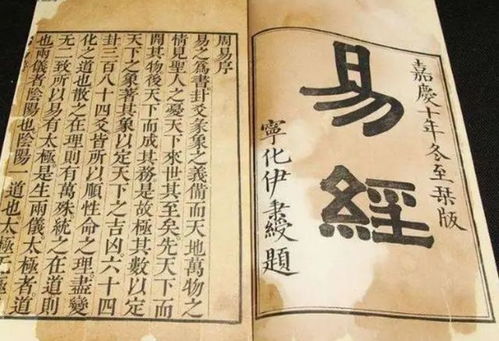 嘉慶十年冬至栞版
易經
寧化伊綬題
周易序
易之為書卦爻彖象之義備而天地萬物之
情見聖人之憂天下來世其至矣先天下而
開其物後天下而成其務是故極其數以定
天下之象著其象以定天下之吉凶六十四
卦三百八十四爻皆所以順性命之理盡變
化之道也散之在理則有萬殊統之在道則
无二致所以易有太極是生兩儀太極者道
也兩儀者陰陽也陰陽一道也太極无